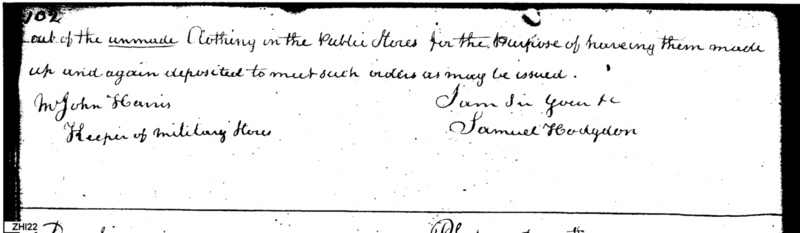 102
out of the unmade Clothing in the Public Stores for the Purpose of haveing them made
up and again deposited to meet such orders as may be issued.
Mr John Harris
I am Sir your &c
Keeper of Military Stores
Samuel Hodgdon
ZHI22